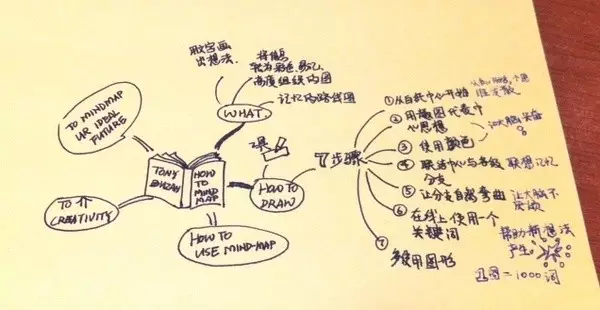 TO MINDMAP
UR IDEAL
FUTURE
TONY
BUZAN
HOW
TO
MIND
MAP
TO 个
CREATIVITY
HOW TO
USE MIND-MAP
WHAT
用文字画
出想法
将信息
转为彩色、易记、
高度组织的图
记忆的路线图
HOW TO
DRAW
7步骤
①从白纸中心开始
②用趣图代表中
心思想
③使用颜色
④联结中心与各级
分支
联想记忆
⑤让分支自然弯曲
让大脑不
⑥在线上使用一个
关键词
帮助新想法
产生
⑦多使用图形
1图=1000词